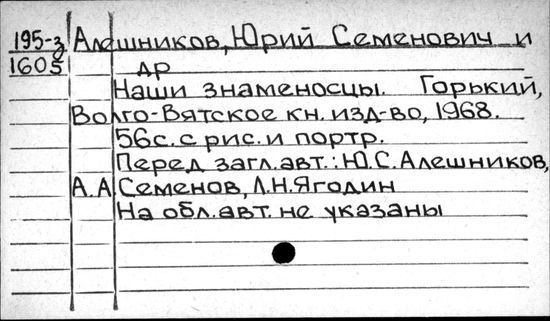 195-3 Алешников, Юрий Семенович и
1605 др
Наши знаменосцы. Горький,
Волго-Вятское кн. изд-во, 1968.
56с. с рис. и портр.
Перед загл. авт.: Ю.С. Алешников,
А.А. Семенов, Л.Н. Ягодин
На обл. авт. не указаны